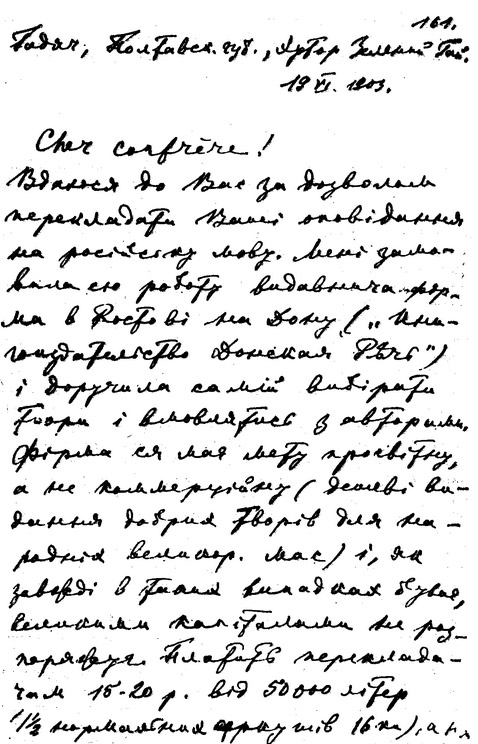 161.
Гадяч, Полтавск. губ., Хутор Зелений Гай.
19 VI. 1903.
Cher confrère!
Вдаюся до Вас за дозволом
перекладати Ваші оповідання
на російську мову. Мені замо-
вила сю роботу видавнича фір-
ма в Ростові на Дону („Кни-
гоиздательство Донская Рѣчь")
і доручила самій вибірати
твори і вмовлятись з авторами.
Фірма ся має мету просвітну,
а не коммерційну (дешеві ви-
дання добрих творів для на-
родніх великор. мас) і, як
завжді в таких випадках буває,
великими капіталами не роз-
поряжує. Платить переклада-
чам 15-20 р. від 50000 літер
(1½ нормальних аркушів 16 ки), а н